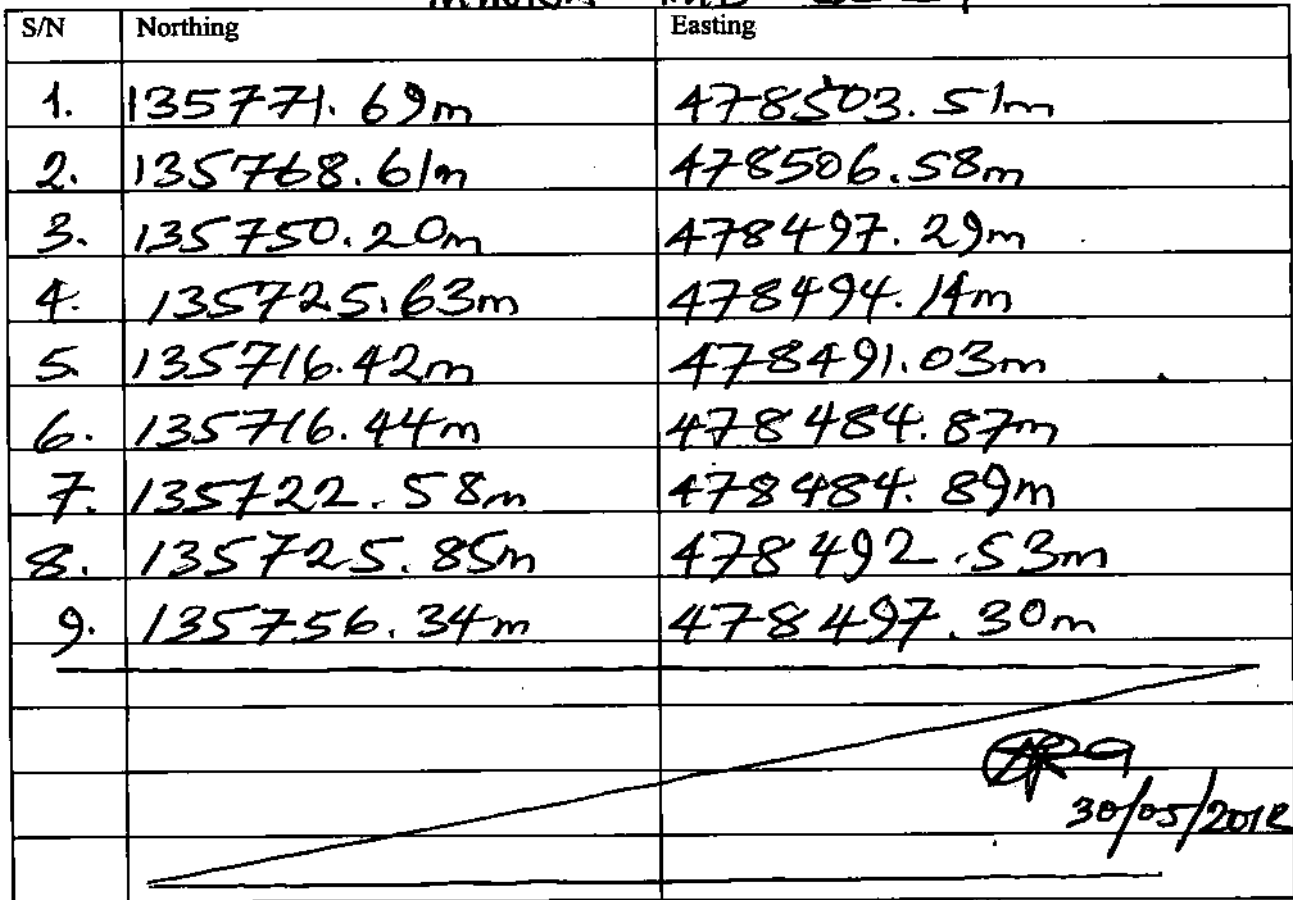 S/N Northing Easting
1. 135771.69m 478503.51m
2. 135768.61m 478506.58m
3. 135750.20m 478497.29m
4. 135725.63m 478494.14m
5. 135716.42m 478491.03m
6. 135716.44m 478484.87m
7. 135722.58m 478484.89m
8. 135725.85m 478492.53m
9. 135756.34m 478497.30m
30/05/2012